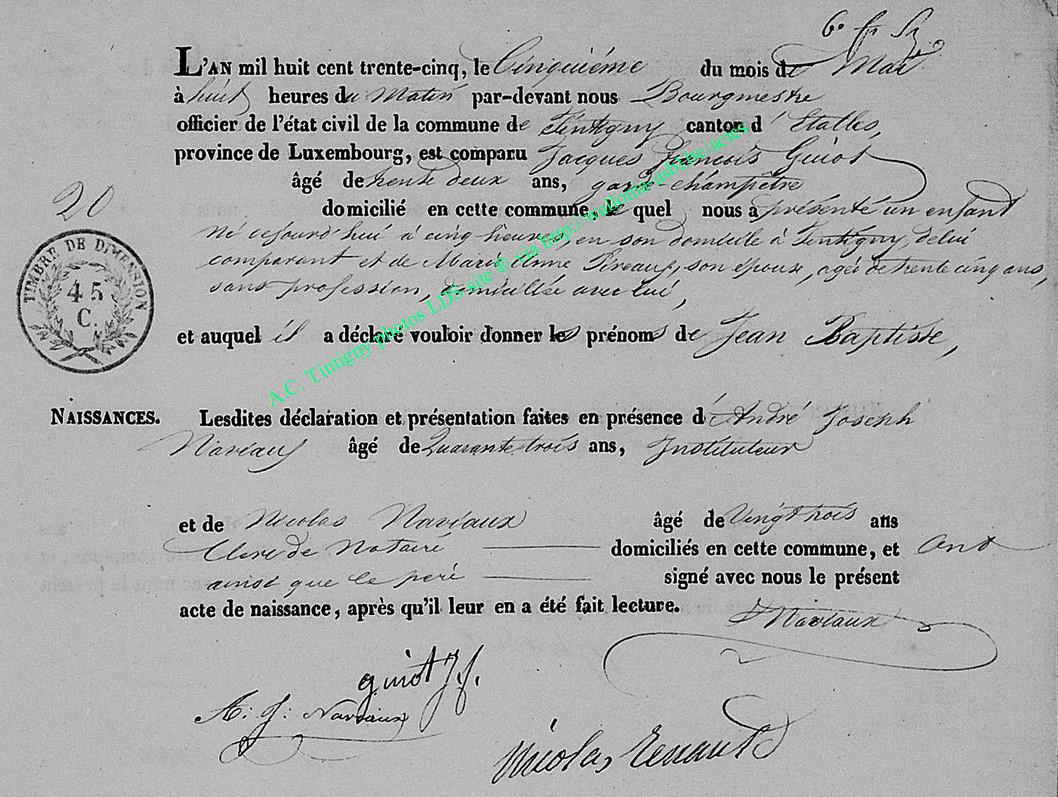 L'AN mil huit cent trente-cinq, le Cinquième du mois de Mai
à huit heures du Matin par-devant nous Bourgmestre
officier de l'état civil de la commune de Tintigny canton d'Etalles,
province de Luxembourg, est comparu Jacques François Guiot
âgé de trente deux ans, garde-champêtre
domicilié en cette commune, le quel nous a présenté un enfant
20
né cejourd'hui à cinq heures, en son domicile à Tintigny, de lui
comparant et de Marie Anne Pireaux, son épouse, agée de trente cinq ans,
sans profession, domiciliée avec lui,
TIMBRE DE DIMENSION
45
C.
et auquel il a déclaré vouloir donner les prénoms de Jean Baptiste,
A.C. Tintigny photos LDS site © via
NAISSANCES. Lesdites déclaration et présentation faites en présence d'André Joseph
Naviaux âgé de Quarante trois ans, Instituteur
et de Nicolas Naviaux âgé de Vingt trois ans
Clerc de Notaire domiciliés en cette commune, et ont
ainsi que le père signé avec nous le présent
acte de naissance, après qu'il leur en a été fait lecture.
Naviaux
guiot J. f.
A: J: Naviaux
Nicolas Renauld